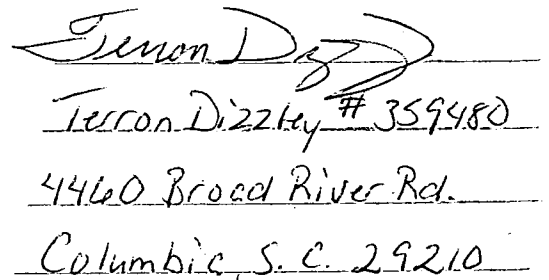 Terron Dizzley
Terron Dizzley # 359480
4460 Broad River Rd.
Columbia, S. C. 29210